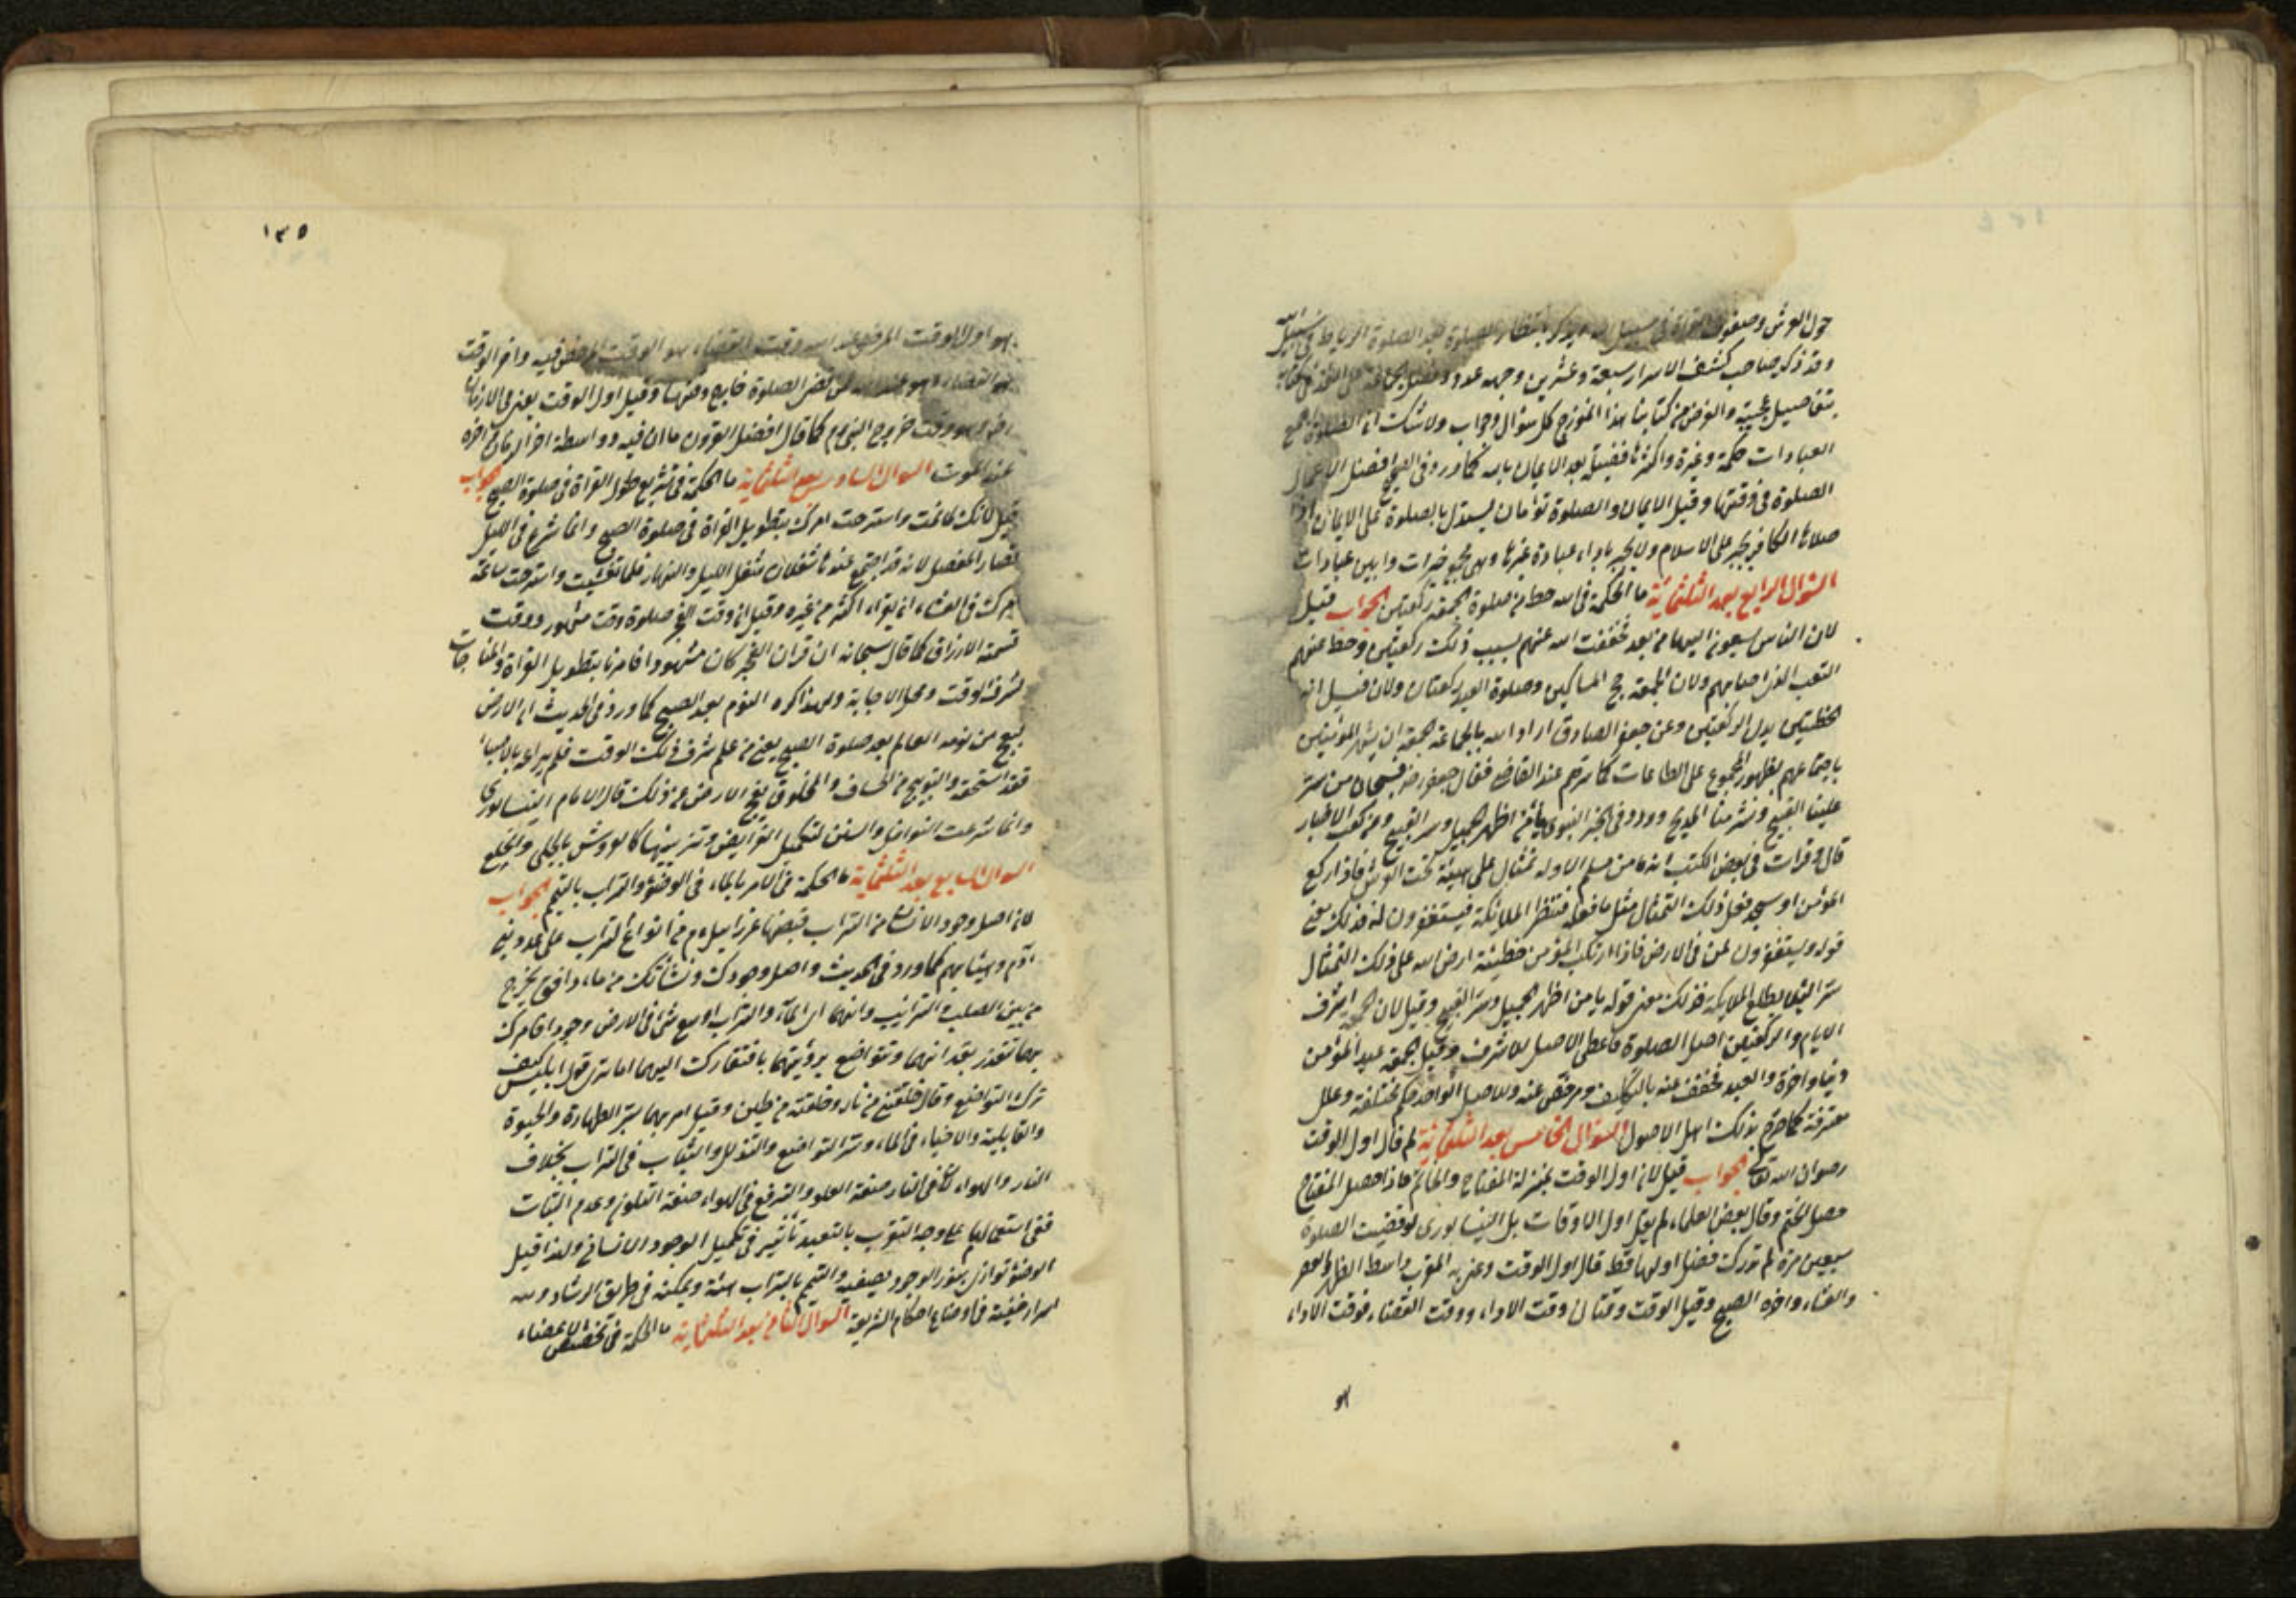 حول العرش وصفوف الغزاة فى سبيل الله بانتظار الصلوة بعد الصلوة الرباط فى سبيل الله
وقد ذكر صاحب كشف الاسرار سبعة وعشرين وجهه عدد
بتفاصيل عجيبة والغرض من كتابنا هذا انموزج كل سؤال وجواب ولا شك ان الصلوة اجمع
العبادات حكمة وغيرة واكثرها فضيلة بعد الايمان بالله كما ورد فى الصحيح افضل الاعمال
الصلوة فى وقتها وقيل الايمان والصلوة توأمان يستدل بالصلوة على الايمان اذا
صلاها الكافر يجبر على الاسلام ولا يجبر باداء عبادة غيرها وهى مجمع خيرات وابين عبادات
السؤال الرابع بعد الثلثمائة ما الحكمة فى ان الله حط من صلوة الجمعة ركعتين الجواب قيل
لان الناس يسعون اليها من بعد فخففت الله عنهم بسبب ذلك ركعتين وحط عنهم
التعب الذى اصابهم ولان الجمعة حج المساكين وصلوة العيد ركعتان ولان قيل ان
الخطبتين بدل الركعتين وعن جعفر الصادق اراد الله بالجماعة الجمعة ان يشهر المؤمنين
باجتماعهم بظهور المجموع على الطاعات كما سترهم عند القاضى فقال جعفر رضه فسبحان من ستر
علينا القبيح ونشر منا المليح وورد فى الخبر النبوى يا من اظهر الجميل وستر القبيح وعن كعب الاحبار
قال وقرات فى بعض الكتب انه ما من مسلم الا وله تمثال على هيئته تحت العرش فاذا ركع
المؤمن او سجد فعل ذلك التمثال مثل ما فعله فتنظر الملائكة فيستغفرون له فذلك معنى
قوله ويستغفرون لمن فى الارض فاذا ارتكب المؤمن خطيئة ارخى الله على ذلك التمثال
ستر الئلا يطلع الملائكة فذلك معنى قوله يا من اظهر الجميل وستر القبيح وقيل لان الجمعة اشرف
الايام والركعتين اصل الصلوة فاعطى الاصل للاشرف وقيل الجمعة عيد المؤمن
دنيا واخرة والعيد مخفف عنه بالتكليف ومرخص عنه وللاصل الواحد حكم مختلفة وعلل
مفترقة كما صرح بذلك اهل الاصول السؤال الخامس بعد الثلثمائة لم قال اول الوقت
رضوان الله تعالى الجواب قيل لان اول الوقت بمنزلة المفتاح والخاتم فاذا حصل المفتاح
حصل الختم وقال بعض العلماء لم يقل اول الاوقات بل النيسابورى لو قضيت الصلوة
سبعين مرة لم تدرك فضل اولها فقط قال اول الوقت وعنى به المغرب واسط الظهر والعصر
والعشاء واخره الصبح وقيل الوقت وقتان وقت الاداء ووقت القضاء فوقت الاداء
هو
١٣٥
هو اول الوقت المرضى عند الله وقت القضاء هو الوقت المرخص فيه واخر الوقت
هو القضاء وهو عند الله لمن بعض الصلوة خارج وقتها وقيل اول الوقت يعنى فى الازمان
اخره وهو وقت خروج النبى ءم كما قال افضل القرون ما انا فيه وواسطة اخر الزمان واخره
عند الموت السؤال السادس بعد الثلثمائة ما الحكمة فى تشريع طول القراة فى صلوة الصبح الجواب
قيل لانك لما نمت واسترحت امرك بتطويل القراة فى صلوة الصبح وانما شرع فى الليل
قصار المفصل لانه قد اجتمع عندها شغلان شغل الليل والنهار فلما تعشيت واسترحت ساعة
امرك فى العشاء ان يقراء اكثر من غيره وقيل ان وقت الفجر صلوة وقت مشهود ووقت
قسمة الارزاق كما قال سبحانه ان قران الفجر كان مشهودا فامرنا بتطويل القراة والمناجات
لشرف الوقت ومحل الاجابة ولهذا كره النوم بعد الصبح كما ورد فى الحديث ان الارض
تعج من نوم العالم بعد صلوة الصبح يعنى من علم شرف ذلك الوقت فلم يراعه بالاحياء
فقد استحقه والتوبيخ من الخساف والمخلوق الارض عن ذلك قال الامام النيسابورى
وانما شرعت النوافل والسنن لتكميل الفرايض وتزيينها كالعروش بالحلى والخلع
السؤال السابع بعد الثلثمائة ما الحكمة فى الامر بالماء فى الوضوء والتراب بالتيمم الجواب
لان اصل وجود الانسان من التراب قبضها عزرائيل ءم من انواع التراب على عدد بنى
آدم وهيئاتهم كما ورد فى الحديث واصل وجودك ونشأتك من ماء دافق يخرج
من بين الصلب والترائب وانهما اى الماء والتراب اوسع شئ فى الارض وجودا فامرك
بهما تعذر بقدانهما وتتواضع برؤيتهما بافتقارك اليهما اما ترى قول ابليس كيف
ترك التواضع وقال خلقتنى من نار وخلقته من طين وقيل امر بهما لسر الطهارة والحيوة
والقابلية والاحياء فى الماء وستر التواضع والتذلل والثبات فى التراب بخلاف
النار والهواء لان فى النار صفة العلو والترفع فى الهواء صفة التلون وعدم الثبات
ففى استعمالهما على وجه التقرب بالتعبد تأثير فى تكميل الوجود الانسانى ولذا قيل
الوضوء توازن بنور الوجود يصفيه والتيمم بالتراب سنة ويمكنه فى طريق الرشاد ولله
اسرار خفية فى اوضاع احكام الشريعة السؤال الثامن بعد الثلثمائة ما الحكمة فى تخصيص الاعضاء